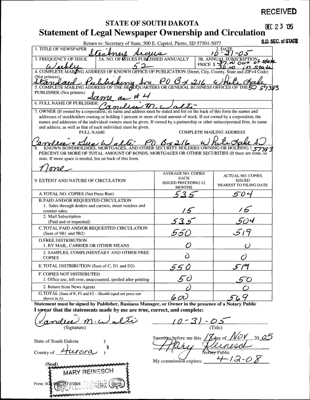 RECEIVED
DEC 23 '05
S.D. SEC. of STATE
STATE OF SOUTH DAKOTA
Statement of Legal Newspaper Ownership and Circulation
Return to: Secretary of State, 500 E. Capitol, Pierre, SD 57501-5077
1. TITLE OF NEWSPAPER
2. DATE
10-31-05
3. FREQUENCY OF ISSUE
Weekly
3A. NO. OF ISSUES PUBLISHED ANNUALLY
52
3B. ANNUAL SUBSCRIPTION PRICE $
4. COMPLETE MAILING ADDRESS OF KNOWN OFFICE OF PUBLICATION (Street, City, County, State and ZIP+4 Code) (Not printers)
Standard Publishing Inc PO Box 216 White Lake SD 57383
5. COMPLETE MAILING ADDRESS OF THE HEADQUARTERS OR GENERAL BUSINESS OFFICES OF THE PUBLISHER (Not printers)
Same as #4
6. FULL NAME OF PUBLISHER:
Candice M. Walti
7. OWNER (If owned by a corporation, its name and address must be stated and on the back of this form the names and addresses of stockholders owning or holding 1 percent or more of total amount of stock. If not owned by a corporation, the names and addresses of the individual owners must be given. If owned by a partnership or other unincorporated firm, its name and address, as well as that of each individual must be given.
FULL NAME COMPLETE MAILING ADDRESS
PO Box 216 White Lake SD 57383
8. KNOWN BONDHOLDERS, MORTGAGEES, AND OTHER SECURITY HOLDERS OWNING OR HOLDING 1 PERCENT OR MORE OF TOTAL AMOUNT OF BONDS, MORTGAGES OR OTHER SECURITIES (If there are none, so state. If more space is needed, list on back of this form).
None
9. EXTENT AND NATURE OF CIRCULATION
AVERAGE NO. COPIES EACH ISSUED PRECEDING 12 MONTHS
ACTUAL NO. COPIES ISSUED NEAREST TO FILING DATE
A. TOTAL NO. COPIES (Net Press Run) 535 504
B. PAID AND/OR REQUESTED CIRCULATION
1. Sales through dealers and carriers, street vendors and counter sales. 15 15
2. Mail Subscription (Paid and or requested) 535 504
C. TOTAL PAID AND/OR REQUESTED CIRCULATION (Sum of 9B1 and 9B2) 550 519
D. FREE DISTRIBUTION
1. BY MAIL, CARRIER OR OTHER MEANS 0 0
2. SAMPLES, COMPLIMENTARY AND OTHER FREE COPIES 0 0
E. TOTAL DISTRIBUTION (Sum of C, D1 and D2) 550 519
F. COPIES NOT DISTRIBUTED
1. Office use, left over, unaccounted, spoiled after printing 50 50
2. Return from News Agents 0 0
G. TOTAL (Sum of E, F1 and F2 - Should equal net press run shown in A) 600 569
Statement must be signed by Publisher, Business Manager, or Owner in the presence of a Notary Public
I swear that the statements made by me are true, correct, and complete:
Candice M. Walti 10-31-05
(Signature) (Title)
State of South Dakota )
County of Aurora )
Sworn to before me this 18 day of Nov 20 05
Mary Reinesch
Notary Public
My commission expires: 4-12-08
(Seal)
MARY REINESCH